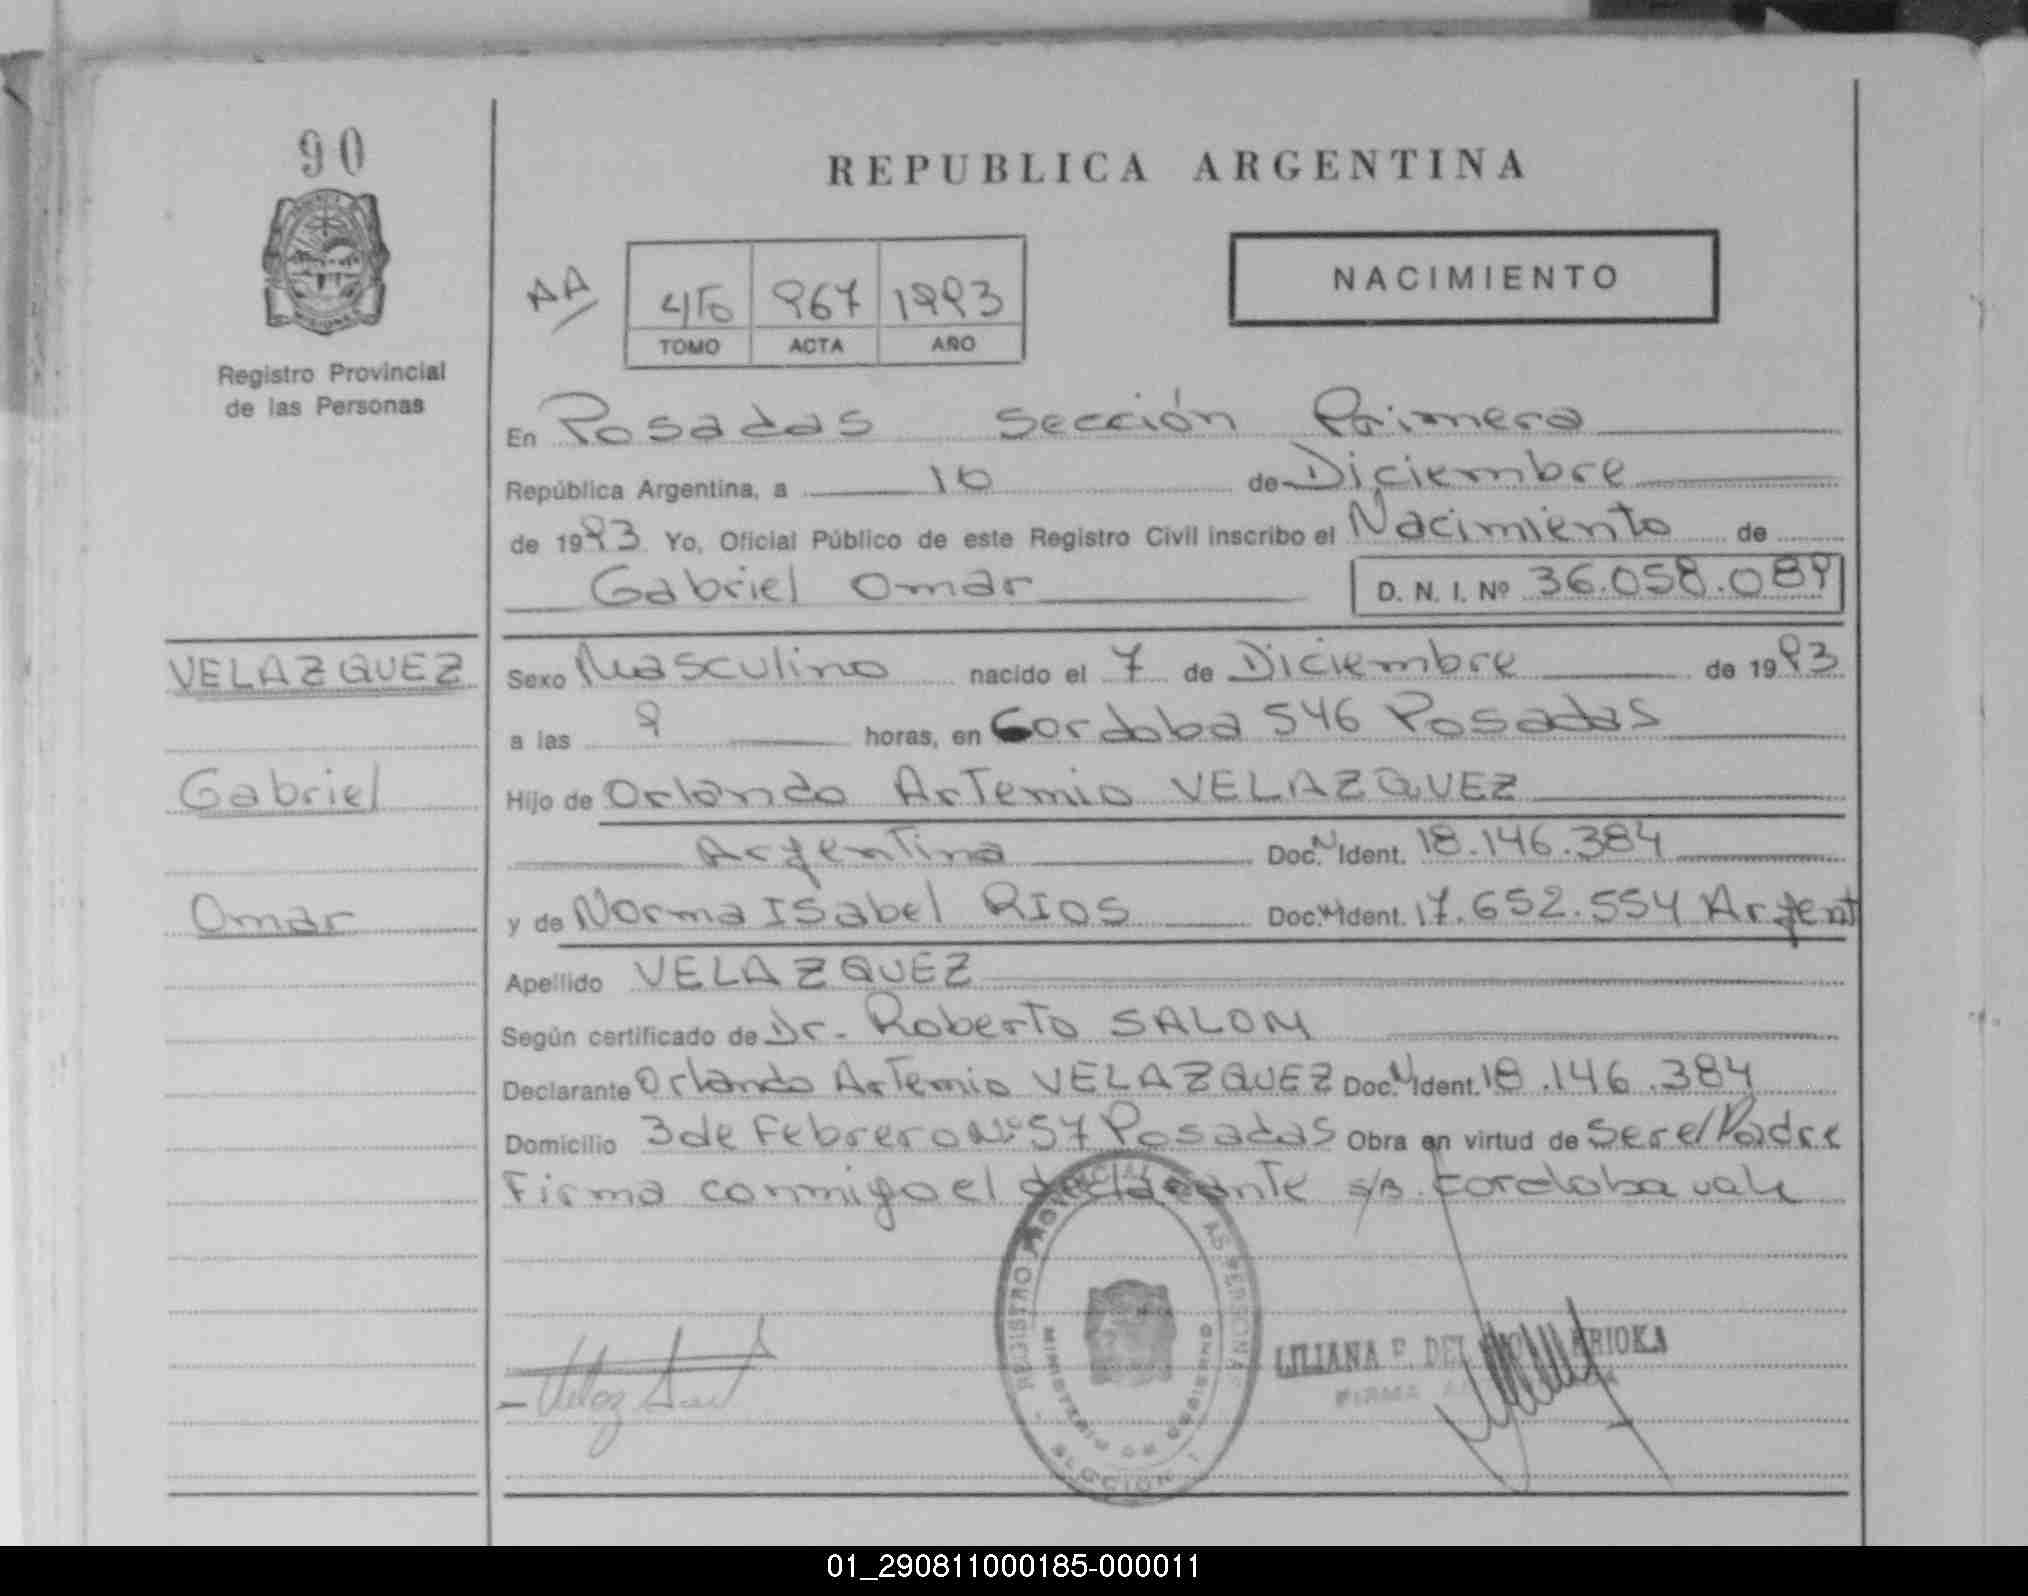 90
REPUBLICA ARGENTINA
NACIMIENTO
AA
4to 967 1993
TOMO ACTA AÑO
Registro Provincial
de las Personas
En Posadas Sección Primera
República Argentina, a 10 de Diciembre
de 1993 Yo, Oficial Público de este Registro Civil inscribo el Nacimiento de
Gabriel Omar D. N. I. Nº 36.058.089
VELAZQUEZ
Sexo Masculino nacido el 7 de Diciembre de 1993
a las 9 horas, en Cordoba 546 Posadas
Gabriel
Hijo de Orlando Artemio VELAZQUEZ
Argentina Doc. N Ident. 18.146.384
Omar
y de Norma Isabel RIOS Doc. N Ident. 17.652.554 Argent
Apellido VELAZQUEZ
Según certificado de Dr. Roberto SALOM
Declarante Orlando Artemio VELAZQUEZ Doc. N Ident. 18.146.384
Domicilio 3 de Febrero Nº 57 Posadas Obra en virtud de Ser el Padre
Firma conmigo el declarante s/B. Cordoba vale
REGISTRO PROVINCIAL AS PERSONAS
MINISTERIO DE GOBIERNO
SECCION 1
LILIANA F. DEL
FIRMA
01_290811000185-000011